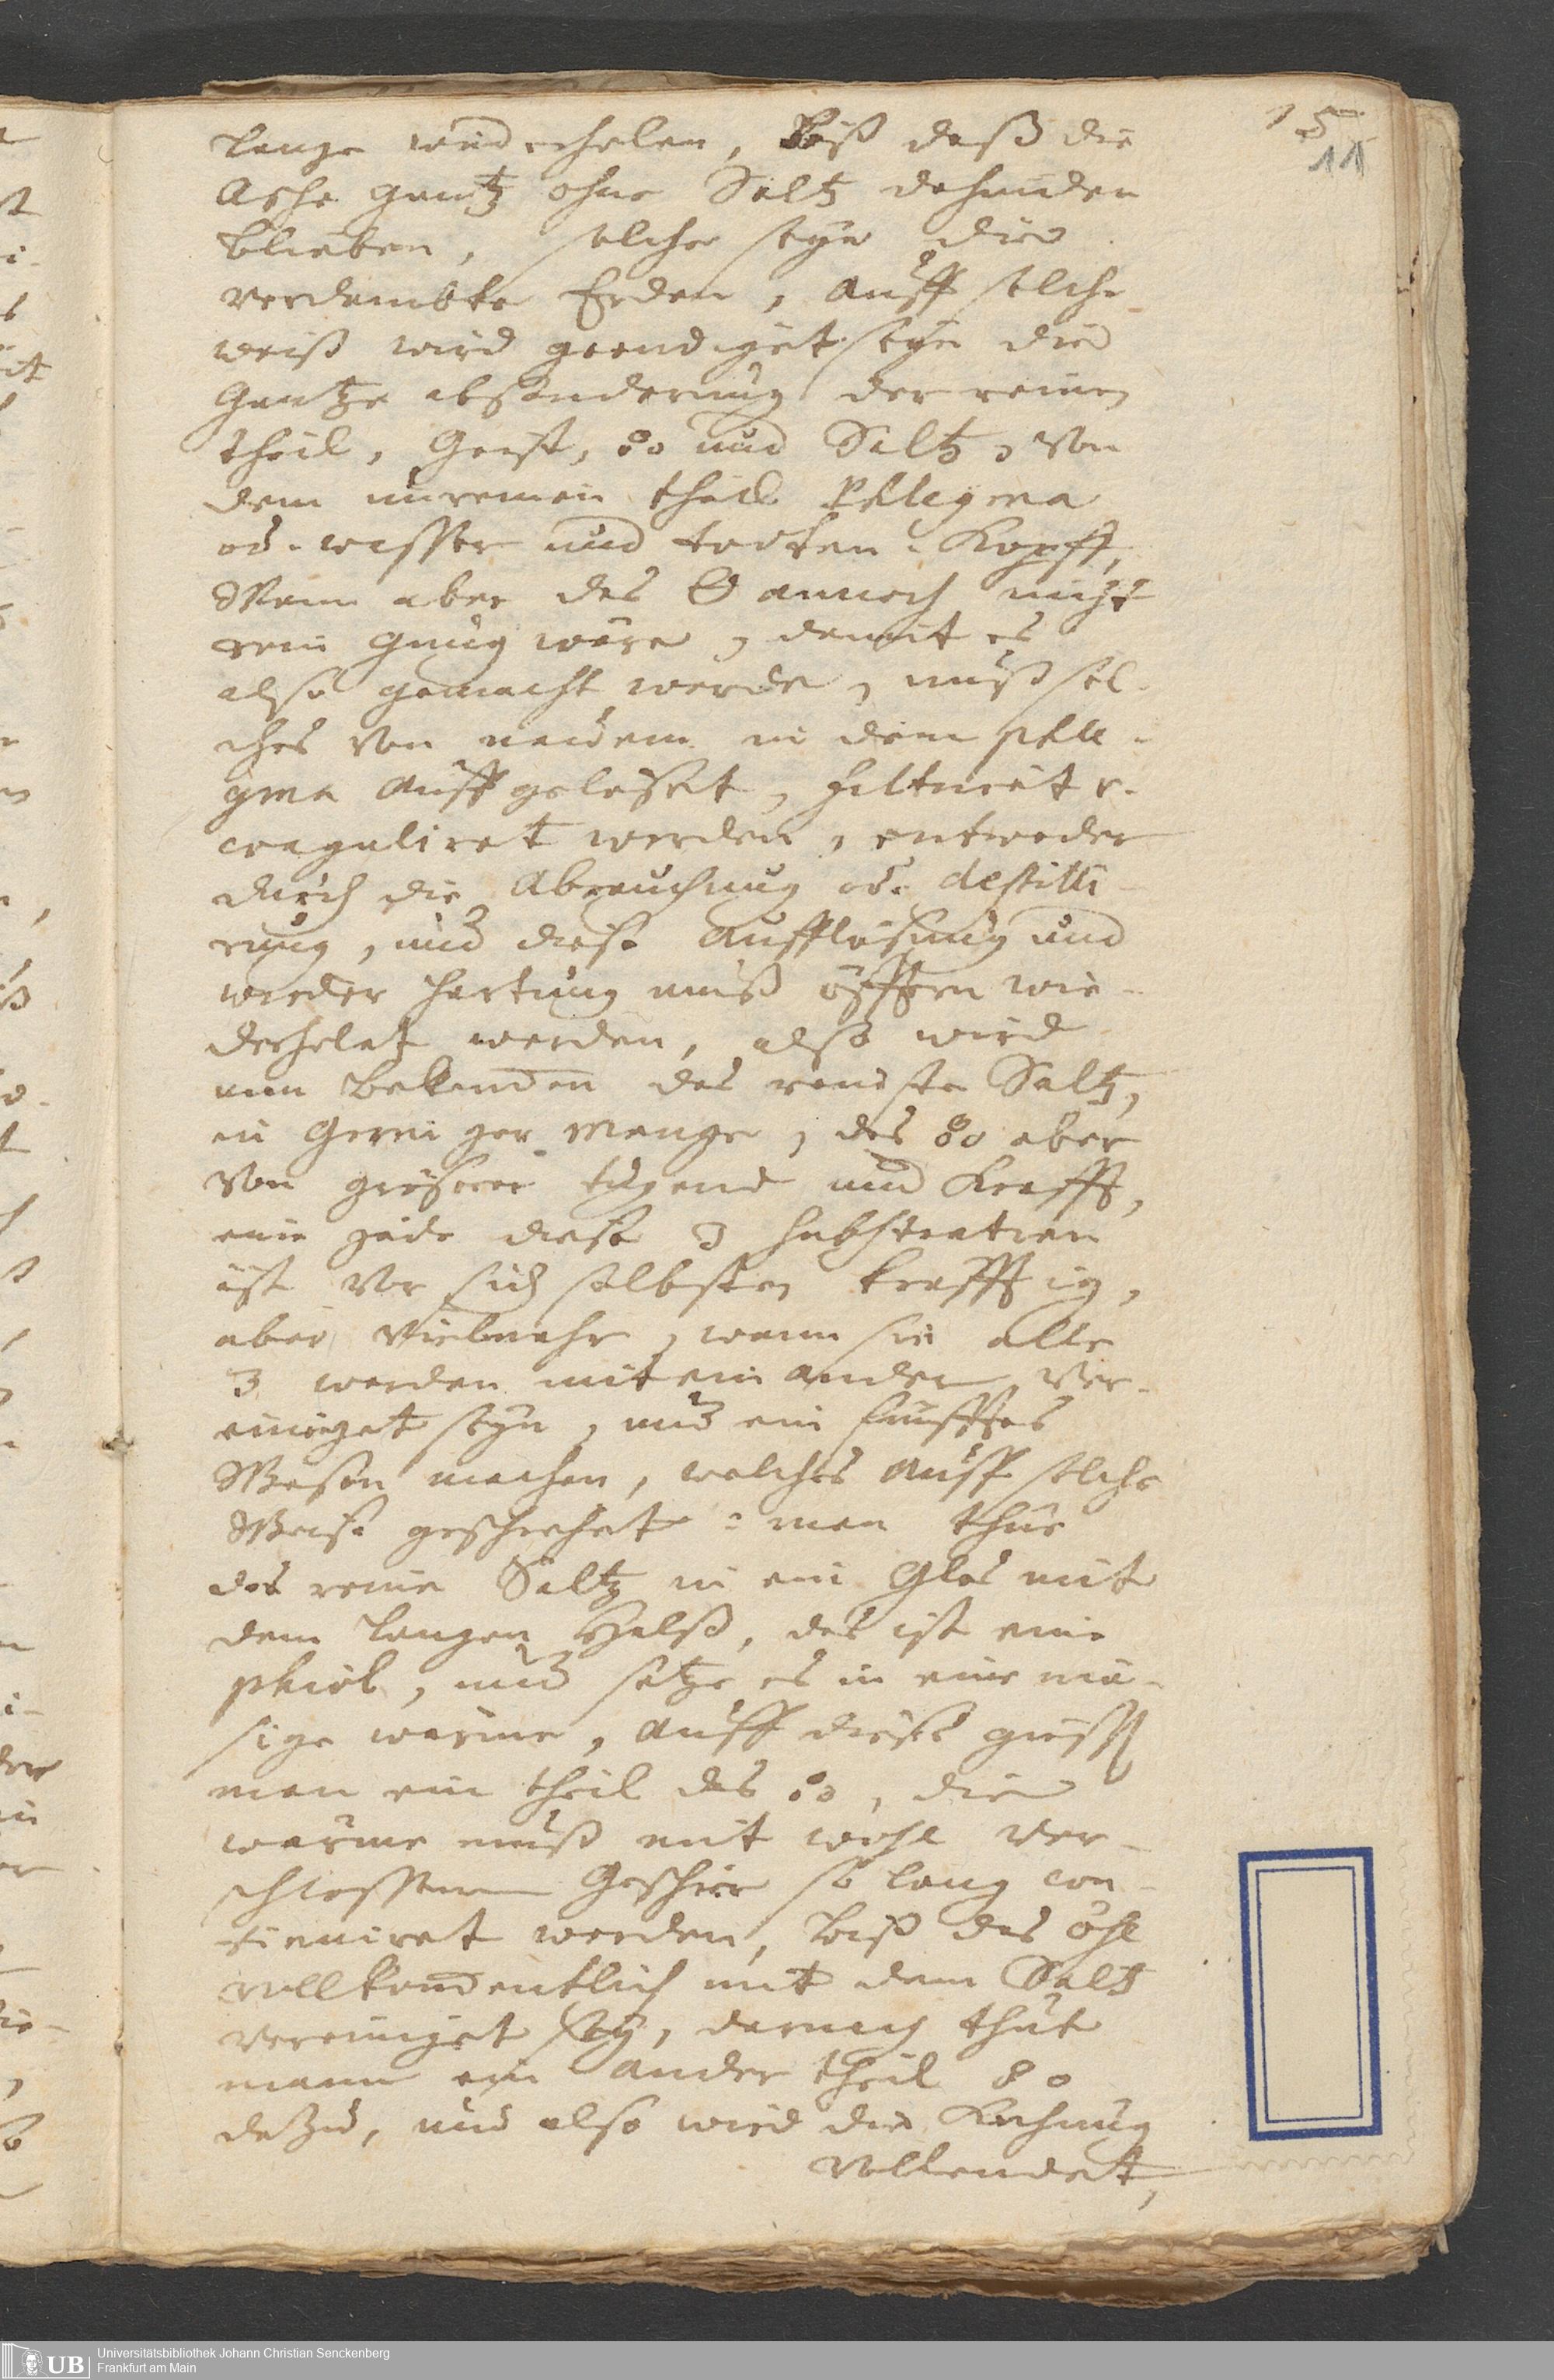 15
11
lange widerhohlen, biß daß die
Asche gantz ohne Saltz dahinden
blieben, solches seyn die
verdambte Erden, Auff solche
weiß wird geendiget seyn die
Gantze absonderung der reinen
theil, Geist, o°o und Saltz, Von
dem unreinen theil Phlegma
od. wasser und todten-Kopff,
Wann aber das θ annoch nicht
rein gnug wäre, damit es
also gemacht werde, muß sol-
ches Von neüem in dem phle-
gma Auffgelösset, filtriret v.
coaguliret werden, entweder
durch die Abrauchung od. destilli-
rung, und diese Aufflösung und
wieder hartung muß öffters wie-
derholet werden, also wird
man bekommen das reinste Saltz,
in Geringer Menge, das o°o aber
Von größerer tugend und Krafft,
eine jede dieser 3 substantien
ist Vor sich selbsten krefftig,
aber Vielmehr, wann sie alle
3 werden mit einander Ver-
einiget seyn, und ein fünfftes
Wesen machen, welches Auff solche
Weise geschiehet: man thue
das reine Saltz in ein Glas mit
dem langen Halß, das ist eine
phiol, und setze es in eine mä-
sige wärme, Auff dieses giesst
man ein theil des o°o, die
wärme muß mit wohl Ver-
schlossenem Geschirr so lang con-
tinuiret werden, biß das öhl
vollkommentlich mit dem Saltz
vereiniget sey, darnach thut
mann ein ander theil o°o
dazu, und also wird die Kochung
Vollendet,
UB
Universitätsbibliothek Johann Christian Senckenberg
Frankfurt am Main